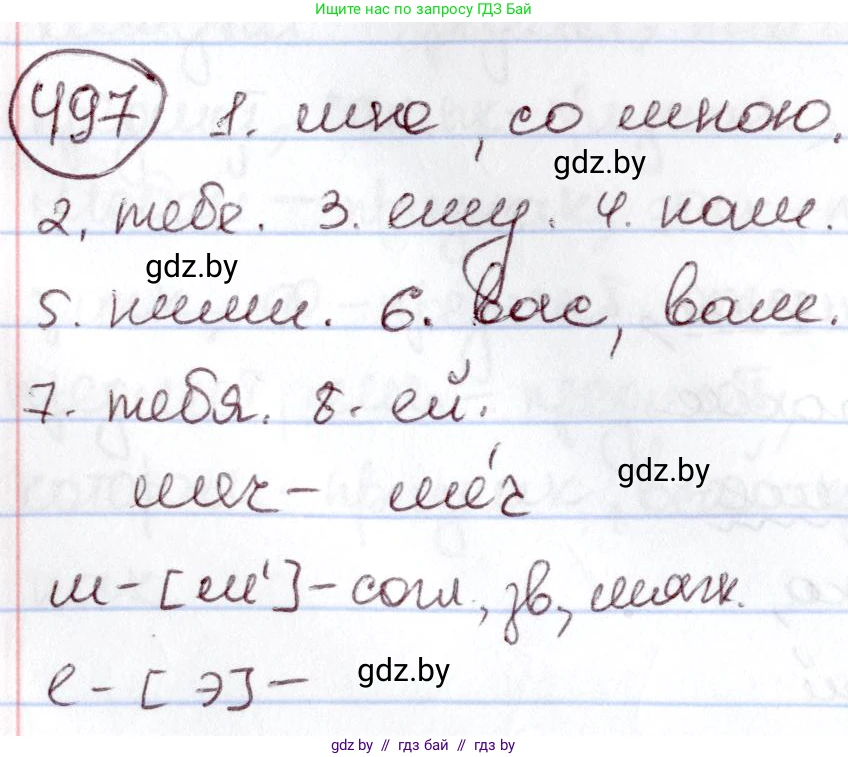 Ищите нас по запросу ГДЗ Бай
497 1. мне, со мною.
gdz.by
2. тебе. 3. ему. 4. нам.
gdz.by
5. ними. 6. вас, вам.
7. тебя. 8. ей.
gdz.by
меч - ме́ч
м - [м'] - согл., зв., мягк.
е - [э] -
gdz.by
gdz by // гдз бай // гдз by